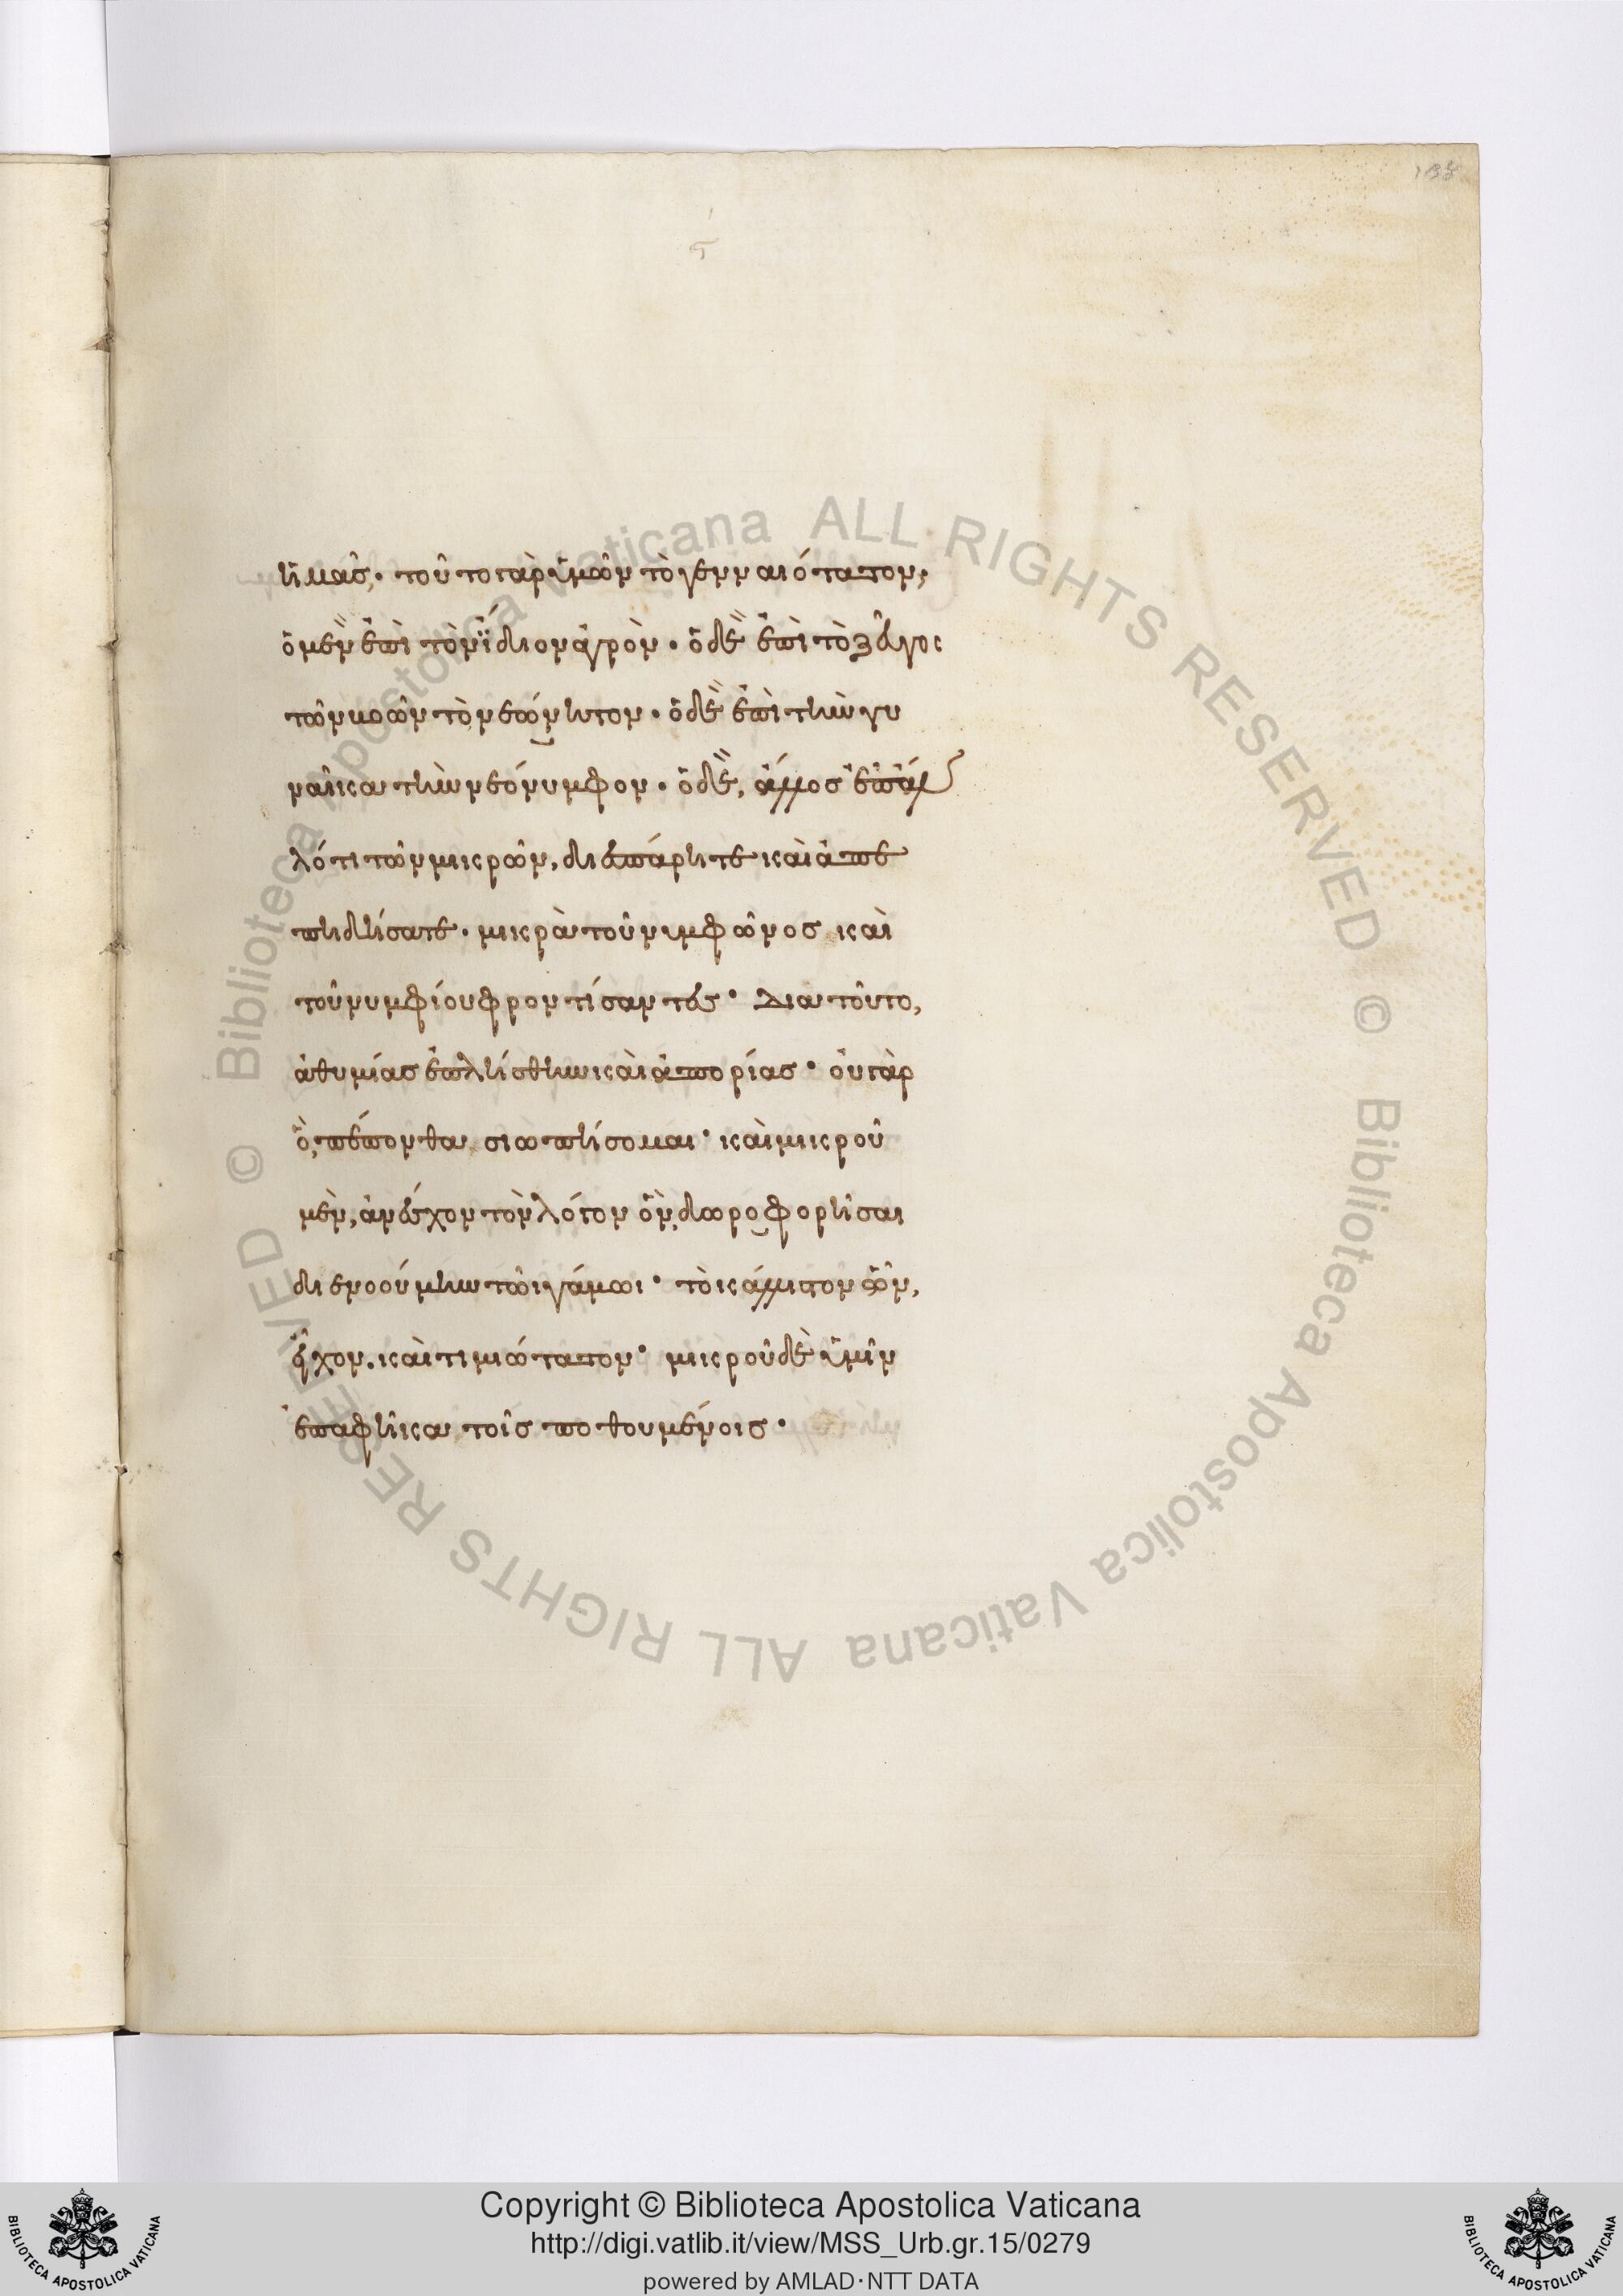 133
ἡμᾶς· τοῦτο γὰρ ὑμῶν τὸ γενναιότατον;
ὁ μὲν ἐπὶ τὸν ἴδιον ἀγρόν· ὁ δὲ ἐπὶ τὸ ζεῦγος
τῶν βοῶν τὸν εώνητον· ὁ δὲ ἐπὶ τὴν γυ
ναῖκα τὴν νεόνυμφον· ὁ δὲ, ἄλλος ἐπ' ἄλ
λό τι τῶν μικρῶν, διεσπάρητε καὶ ἀπε
πηδήσατε· μικρὰ τοῦ νυμφῶνος καὶ
τοῦ νυμφίου φροντίσαντες· Διὰ τοῦτο,
ἀθυμίας ἐπλήσθην καὶ ἀπορίας· οὐ γὰρ
ὃ, πέπονθα σιωπήσομαι· καὶ μικροῦ
μὲν, ἀνέσχον τὸν λόγον ὃν, δωροφορῆσαι
διενοούμην τῶι γάμωι· τὸ κάλλιστον ὧν,
ἔχον. καὶ τιμιώτατον· μικροῦ δὲ ὑμῖν
ἐπαφῆκα τοῖς ποθουμένοις·
© Biblioteca Apostolica Vaticana ALL RIGHTS RESERVED © Biblioteca Apostolica Vaticana ALL RIGHTS RESERVED
BIBLIOTECA APOSTOLICA VATICANA
Copyright © Biblioteca Apostolica Vaticana
http://digi.vatlib.it/view/MSS_Urb.gr.15/0279
powered by AMLAD·NTT DATA
BIBLIOTECA APOSTOLICA VATICANA